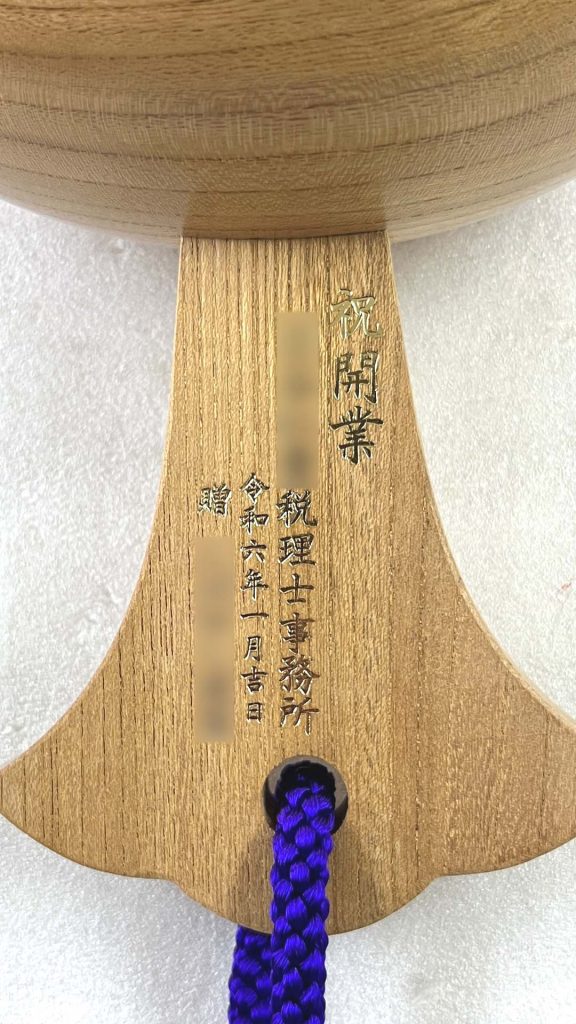 祝開業
税理士事務所
令和六年一月吉日
贈